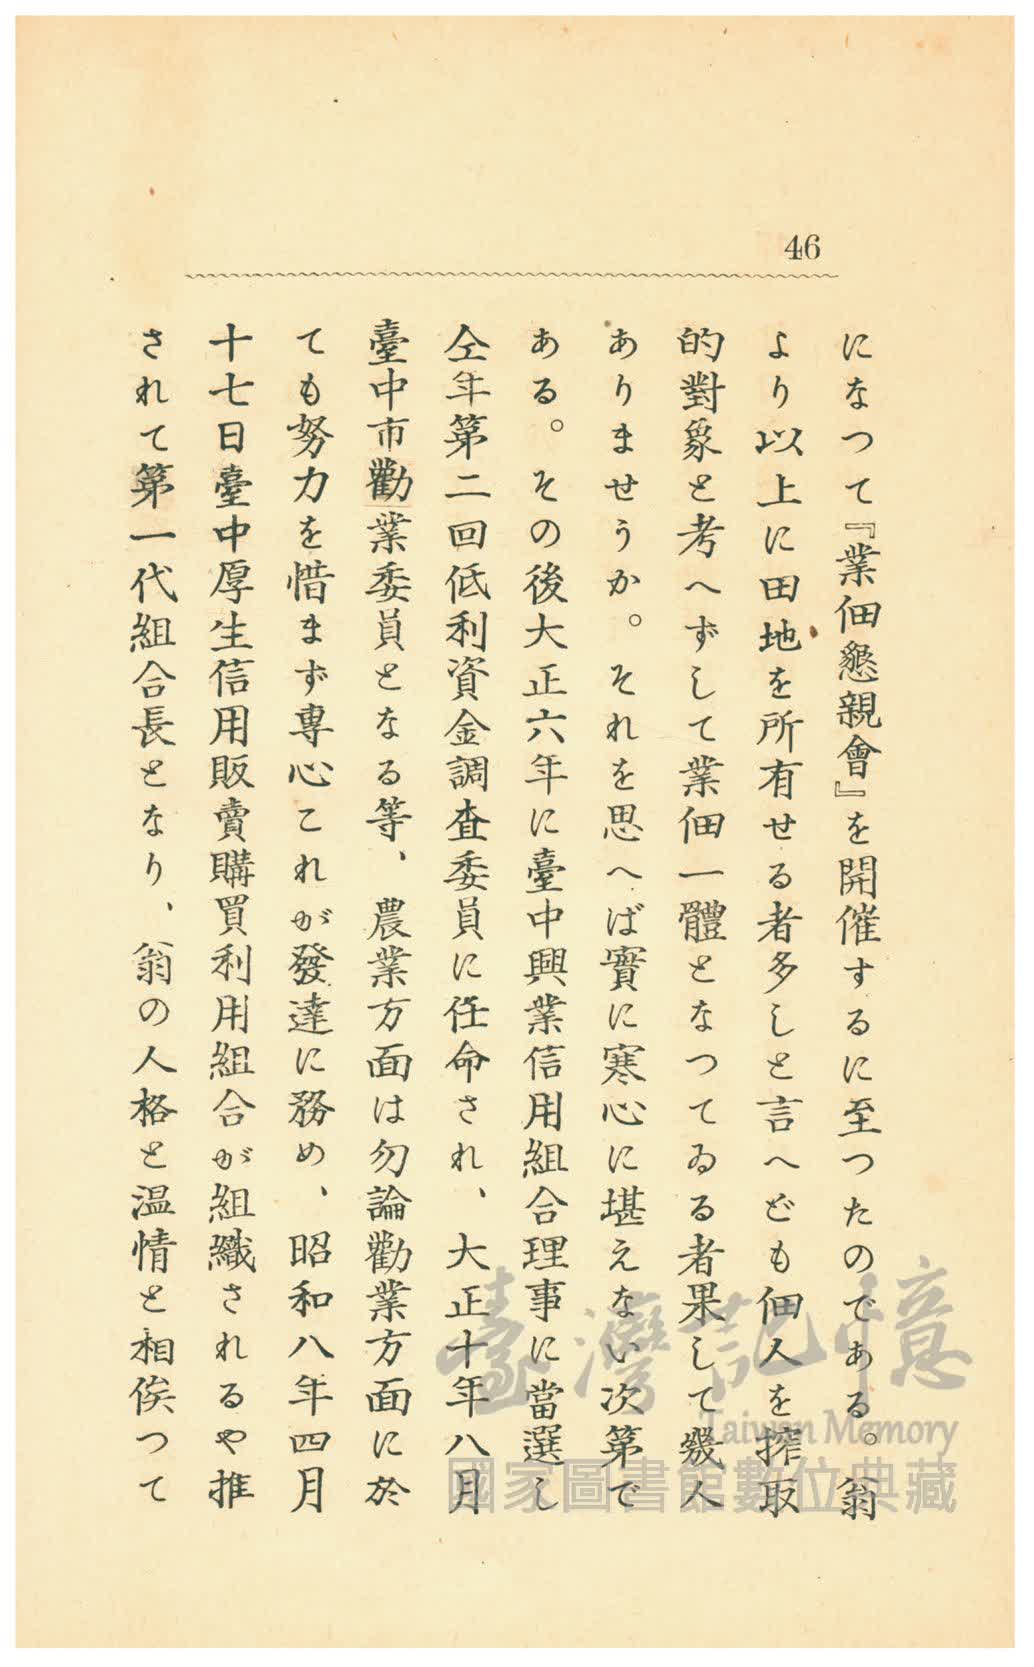 46
になつて『業佃懇親會』を開催するに至つたのである。翁
より以上に田地を所有せる者多しと言へども佃人を搾取
的對象と考へずして業佃一體となつてゐる者果して幾人
ありませうか。それを思へば實に寒心に堪えない次第で
ある。その後大正六年に臺中興業信用組合理事に當選し
仝年第二回低利資金調査委員に任命され、大正十年八月
臺中市勸業委員となる等、農業方面は勿論勸業方面に於
ても努力を惜まず專心これが發達に務め、昭和八年四月
十七日臺中厚生信用販賣購買利用組合が組織されるや推
されて第一代組合長となり、翁の人格と温情と相俟つて
臺灣記憶
Taiwan Memory
國家圖書館數位典藏